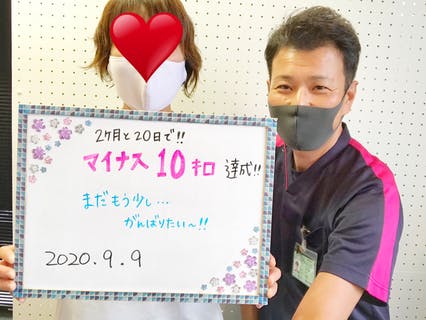 2ヶ月と20日で!!
マイナス10キロ 達成!!
まだもう少し…
がんばりたい〜!!
2020.9.9